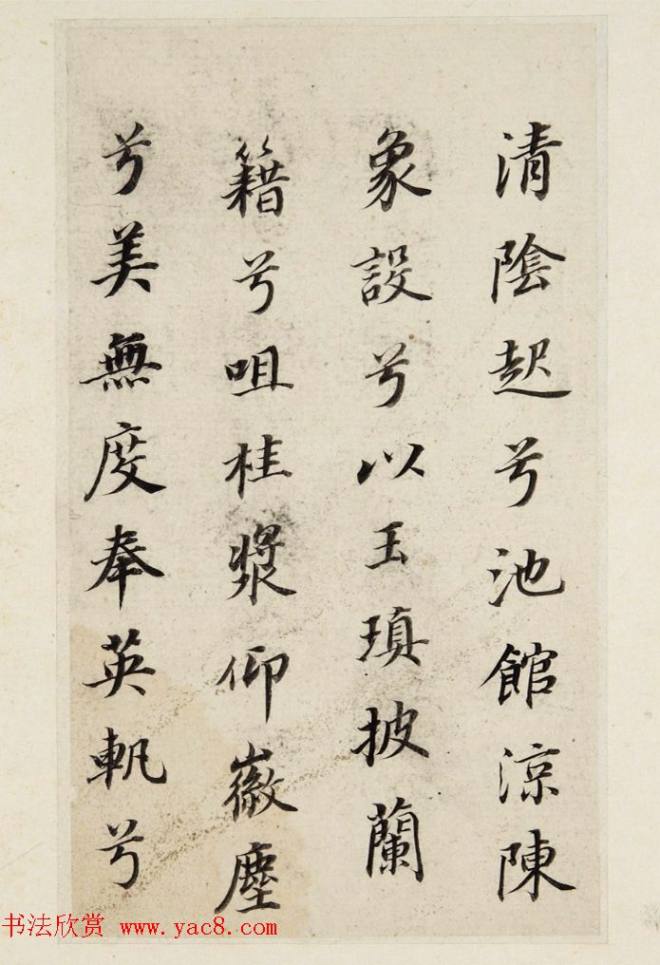 清陰起兮池館涼陳
象設兮以玉瑱披蘭
籍兮咀桂漿仰徽塵
兮美無度奉英軌兮
书法欣赏 www.yac8.com